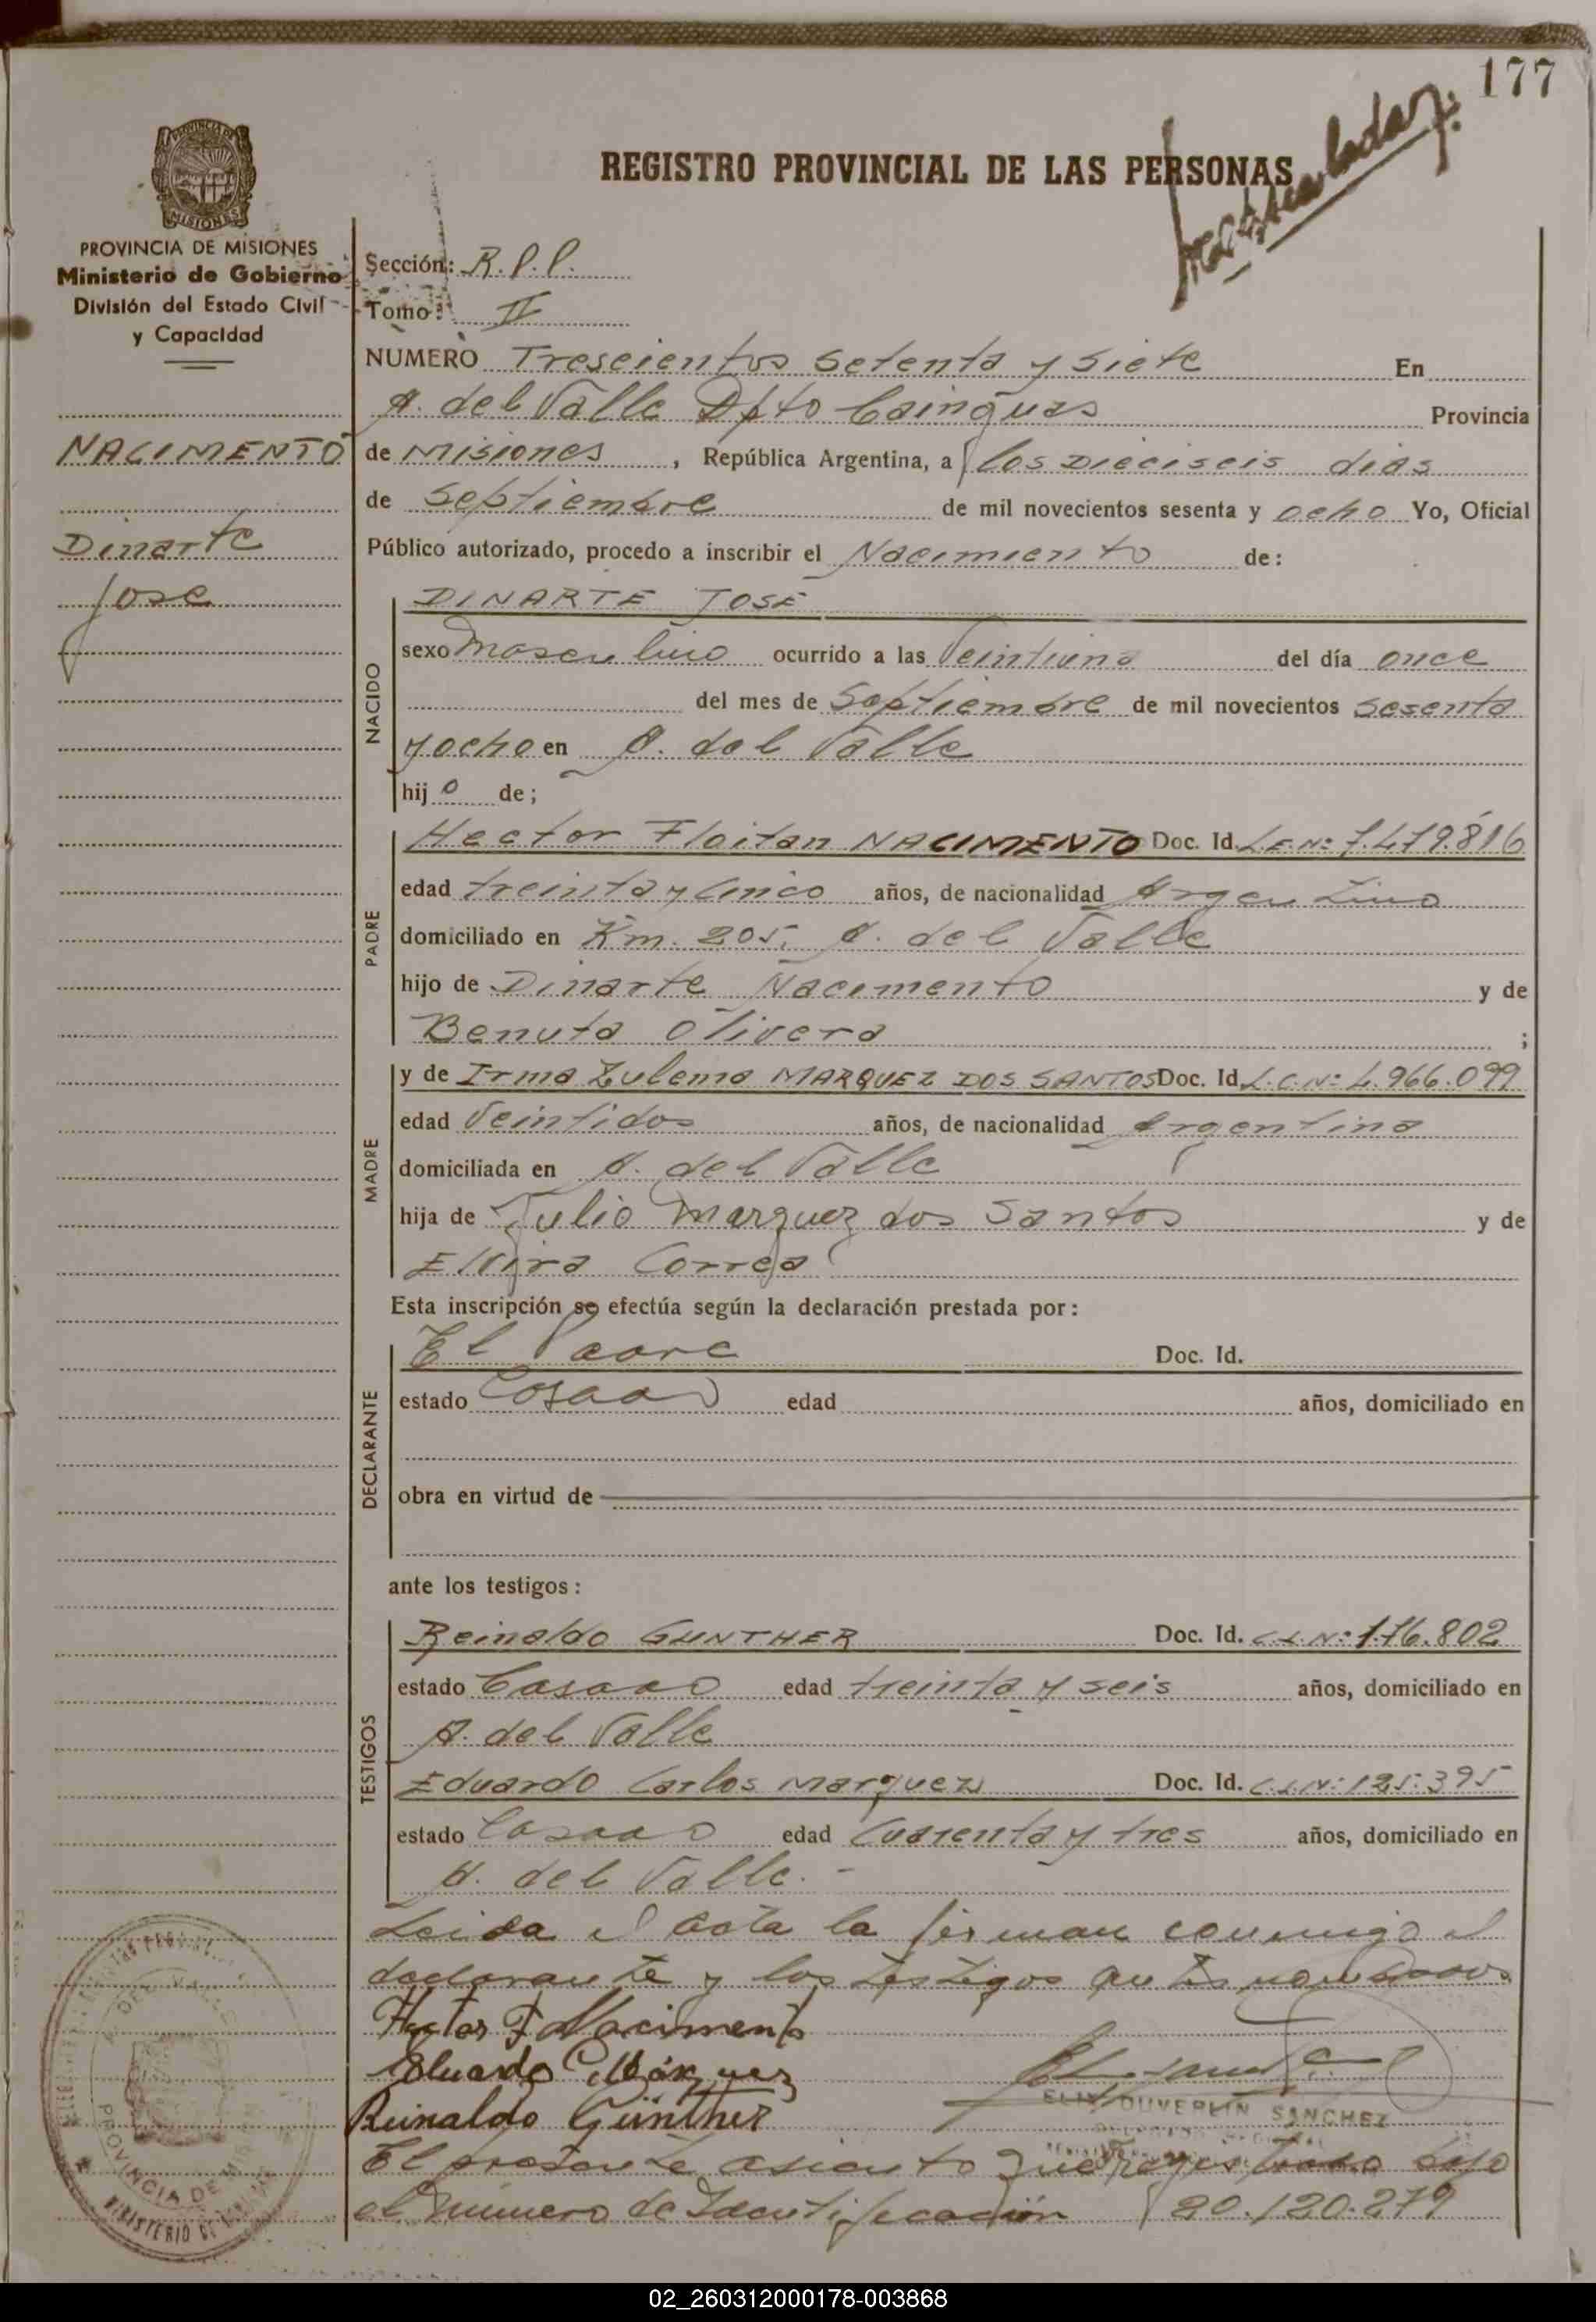 177
REGISTRO PROVINCIAL DE LAS PERSONAS
PROVINCIA DE MISIONES
Ministerio de Gobierno
División del Estado Civil
y Capacidad
Sección: R.P.P.
Tomo: II
NUMERO Trescientos setenta y siete En
A. del Valle Dpto Cainguas Provincia
NACIMENTO
de Misiones, República Argentina, a los Dieciseis dias
de Septiembre de mil novecientos sesenta y ocho Yo, Oficial
Dinarte
Público autorizado, procedo a inscribir el Nacimiento de:
Jose
DINARTE JOSE
NACIDO
sexo Masculino ocurrido a las Veintiuna del día once
del mes de Septiembre de mil novecientos sesenta
y ocho en A. del Valle
hijo de;
PADRE
Hector Floitan NACIMENTO Doc. Id. L.E.Nº 7.479.816
edad treinta y cinco años, de nacionalidad Argentino
domiciliado en Km. 205. A. del Valle
hijo de Dinarte Nacimento y de
Benuta Olivera ;
MADRE
y de Irma Zulema MARQUEZ DOS SANTOS Doc. Id. L.C.Nº 4.966.099
edad Veintidos años, de nacionalidad Argentina
domiciliada en A. del Valle
hija de Julio Marquez dos Santos y de
Elvira Correa
Esta inscripción se efectúa según la declaración prestada por:
DECLARANTE
El Padre Doc. Id.
estado Casado edad años, domiciliado en
obra en virtud de
ante los testigos:
TESTIGOS
Reinaldo GUNTHER Doc. Id. C.I.Nº 176.802
estado Casado edad treinta y seis años, domiciliado en
A. del Valle
Eduardo Carlos Marquez Doc. Id. C.I.Nº 125.395
estado Casado edad Cuarenta y tres años, domiciliado en
A. del Valle.-
Leida el Acta la firman conmigo el
declarante y los testigos antes nombrados
Hector F Nacimento
Eduardo C Márquez
Reinaldo Günther
DUVERLIN SANCHEZ
El presente asiento fue registrado bajo
el número de Identificación 20.120.279
A. DEL VALLE
PROVINCIA DE MISIONES
MINISTERIO DE GOBIERNO
02_260312000178-003868